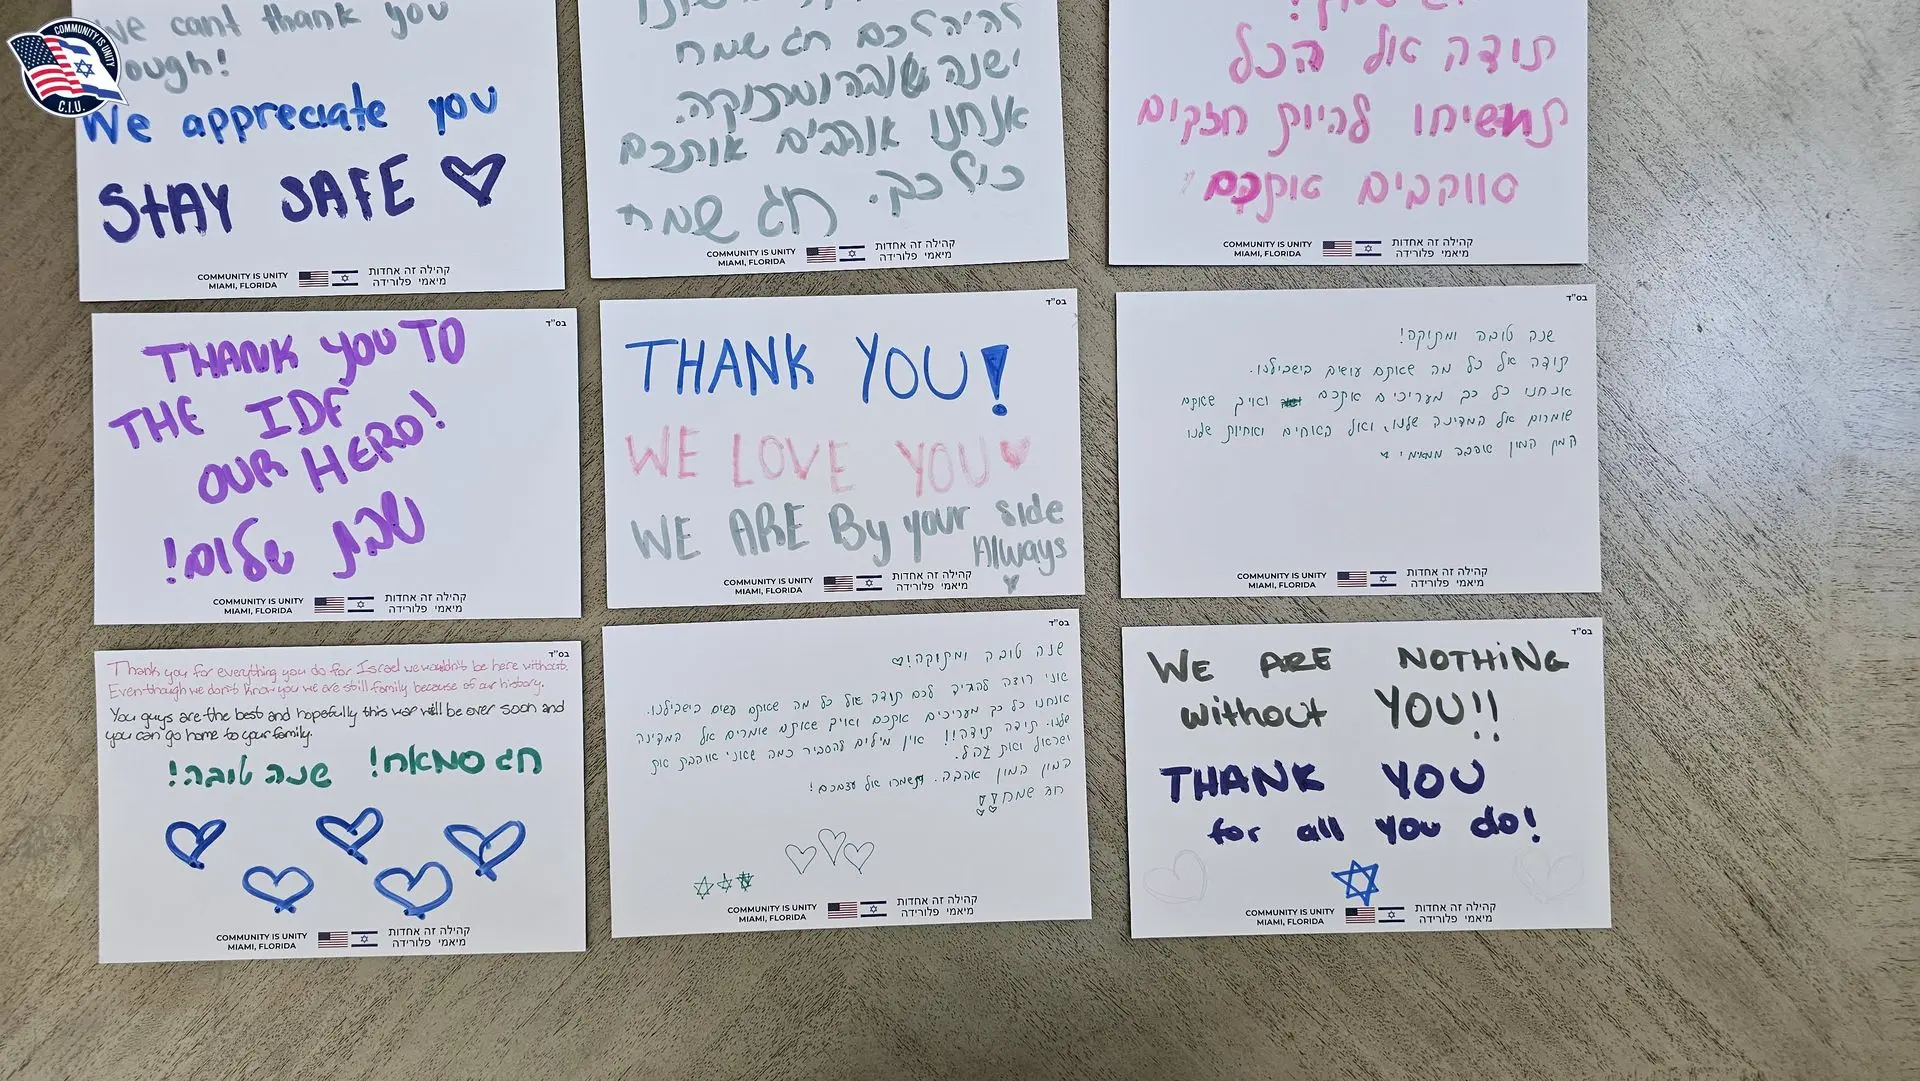 COMMUNITY IS UNITY
C.I.U.
We cant thank you
ough!
We appreciate you
STAY SAFE
COMMUNITY IS UNITY
MIAMI, FLORIDA
קהילה זה אחדות
מיאמי פלורידה
להיה לכם חג שמח
ושנה טובה ומתוקה.
אנחנו אוהבים אותכם
כול כך. חג שמח
COMMUNITY IS UNITY
MIAMI, FLORIDA
קהילה זה אחדות
מיאמי פלורידה
תודה אל הכל
תמשיחו להיות חזקים
אותכם
COMMUNITY IS UNITY
MIAMI, FLORIDA
קהילה זה אחדות
מיאמי פלורידה
בס"ד
THANK YOU TO
THE IDF
OUR HERO!
שבת שלום!
COMMUNITY IS UNITY
MIAMI, FLORIDA
קהילה זה אחדות
מיאמי פלורידה
בס"ד
THANK YOU!
WE LOVE YOU
WE ARE By your side
Always
COMMUNITY IS UNITY
MIAMI, FLORIDA
קהילה זה אחדות
מיאמי פלורידה
בס"ד
שנה טובה ומתוקה!
תודה אל כל מה שאתם עושים בישבילנו.
אנחנו כל כך מעריכים אתכם ואיך שאתם
שומרים אל המדינה שלנו, ואל האוחים ואחיות שלנו
המון המון אהבה ממיאמי
COMMUNITY IS UNITY
MIAMI, FLORIDA
קהילה זה אחדות
מיאמי פלורידה
בס"ד
Thank you for everything you do for Israel we wouldn't be here without.
Even though we don't know you we are still family because of our history.
You guys are the best and hopefully this war will be over soon and
you can go home to your family.
חג סמאח! שנה טובה!
COMMUNITY IS UNITY
MIAMI, FLORIDA
קהילה זה אחדות
מיאמי פלורידה
בס"ד
שנה טובה ומתוקה!
אני רוצה להגיד לכם תודה אל כל מה שאתם עשים בישבילנו.
אנחנו כל כך מעריכים אתכם ואיך שאתם שומרים אל המדינה
שלנו. תודה תודה!! אין מילים להסביר כמה שאני אוהבת את
ישראל ואת צהל.
המון המון אהבה. תשמרו אל עצמכם!
חג שמח
COMMUNITY IS UNITY
MIAMI, FLORIDA
קהילה זה אחדות
מיאמי פלורידה
בס"ד
WE ARE NOTHING
without YOU!!
THANK YOU
for all you do!
COMMUNITY IS UNITY
MIAMI, FLORIDA
קהילה זה אחדות
מיאמי פלורידה